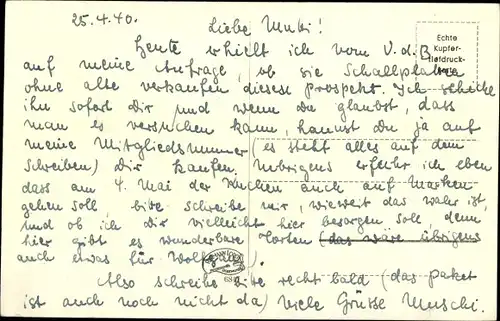 25.4.40. Liebe Mubi!
Echte
Kupfer-
tiefdruck-
Heute erhielt ich vom V.d.B.
auf meine Anfrage, ob sie Schallplatten
ohne alte verkaufen diesen Prospekt. Ich schicke
ihn sofort Dir und wenn du glaubst, dass
man es versuchen kann, kannst du ja auf
meine Mitgliedsnummer (es steht alles auf dem
Schreiben) Dir kaufen. Uebrigens erfuhr ich eben
dass am 4. Mai der Kuchen auch auf Marken
gehen soll, bitte schreibe mir, wieweit das wahr ist,
und ob ich Dir vielleicht hier besorgen soll, denn
hier gibt es wunderbare Torten (das wäre übrigens
auch etwas für ).
Also schreibe bitte recht bald (das Paket
ist auch noch nicht da) viele Grüsse Muschi.